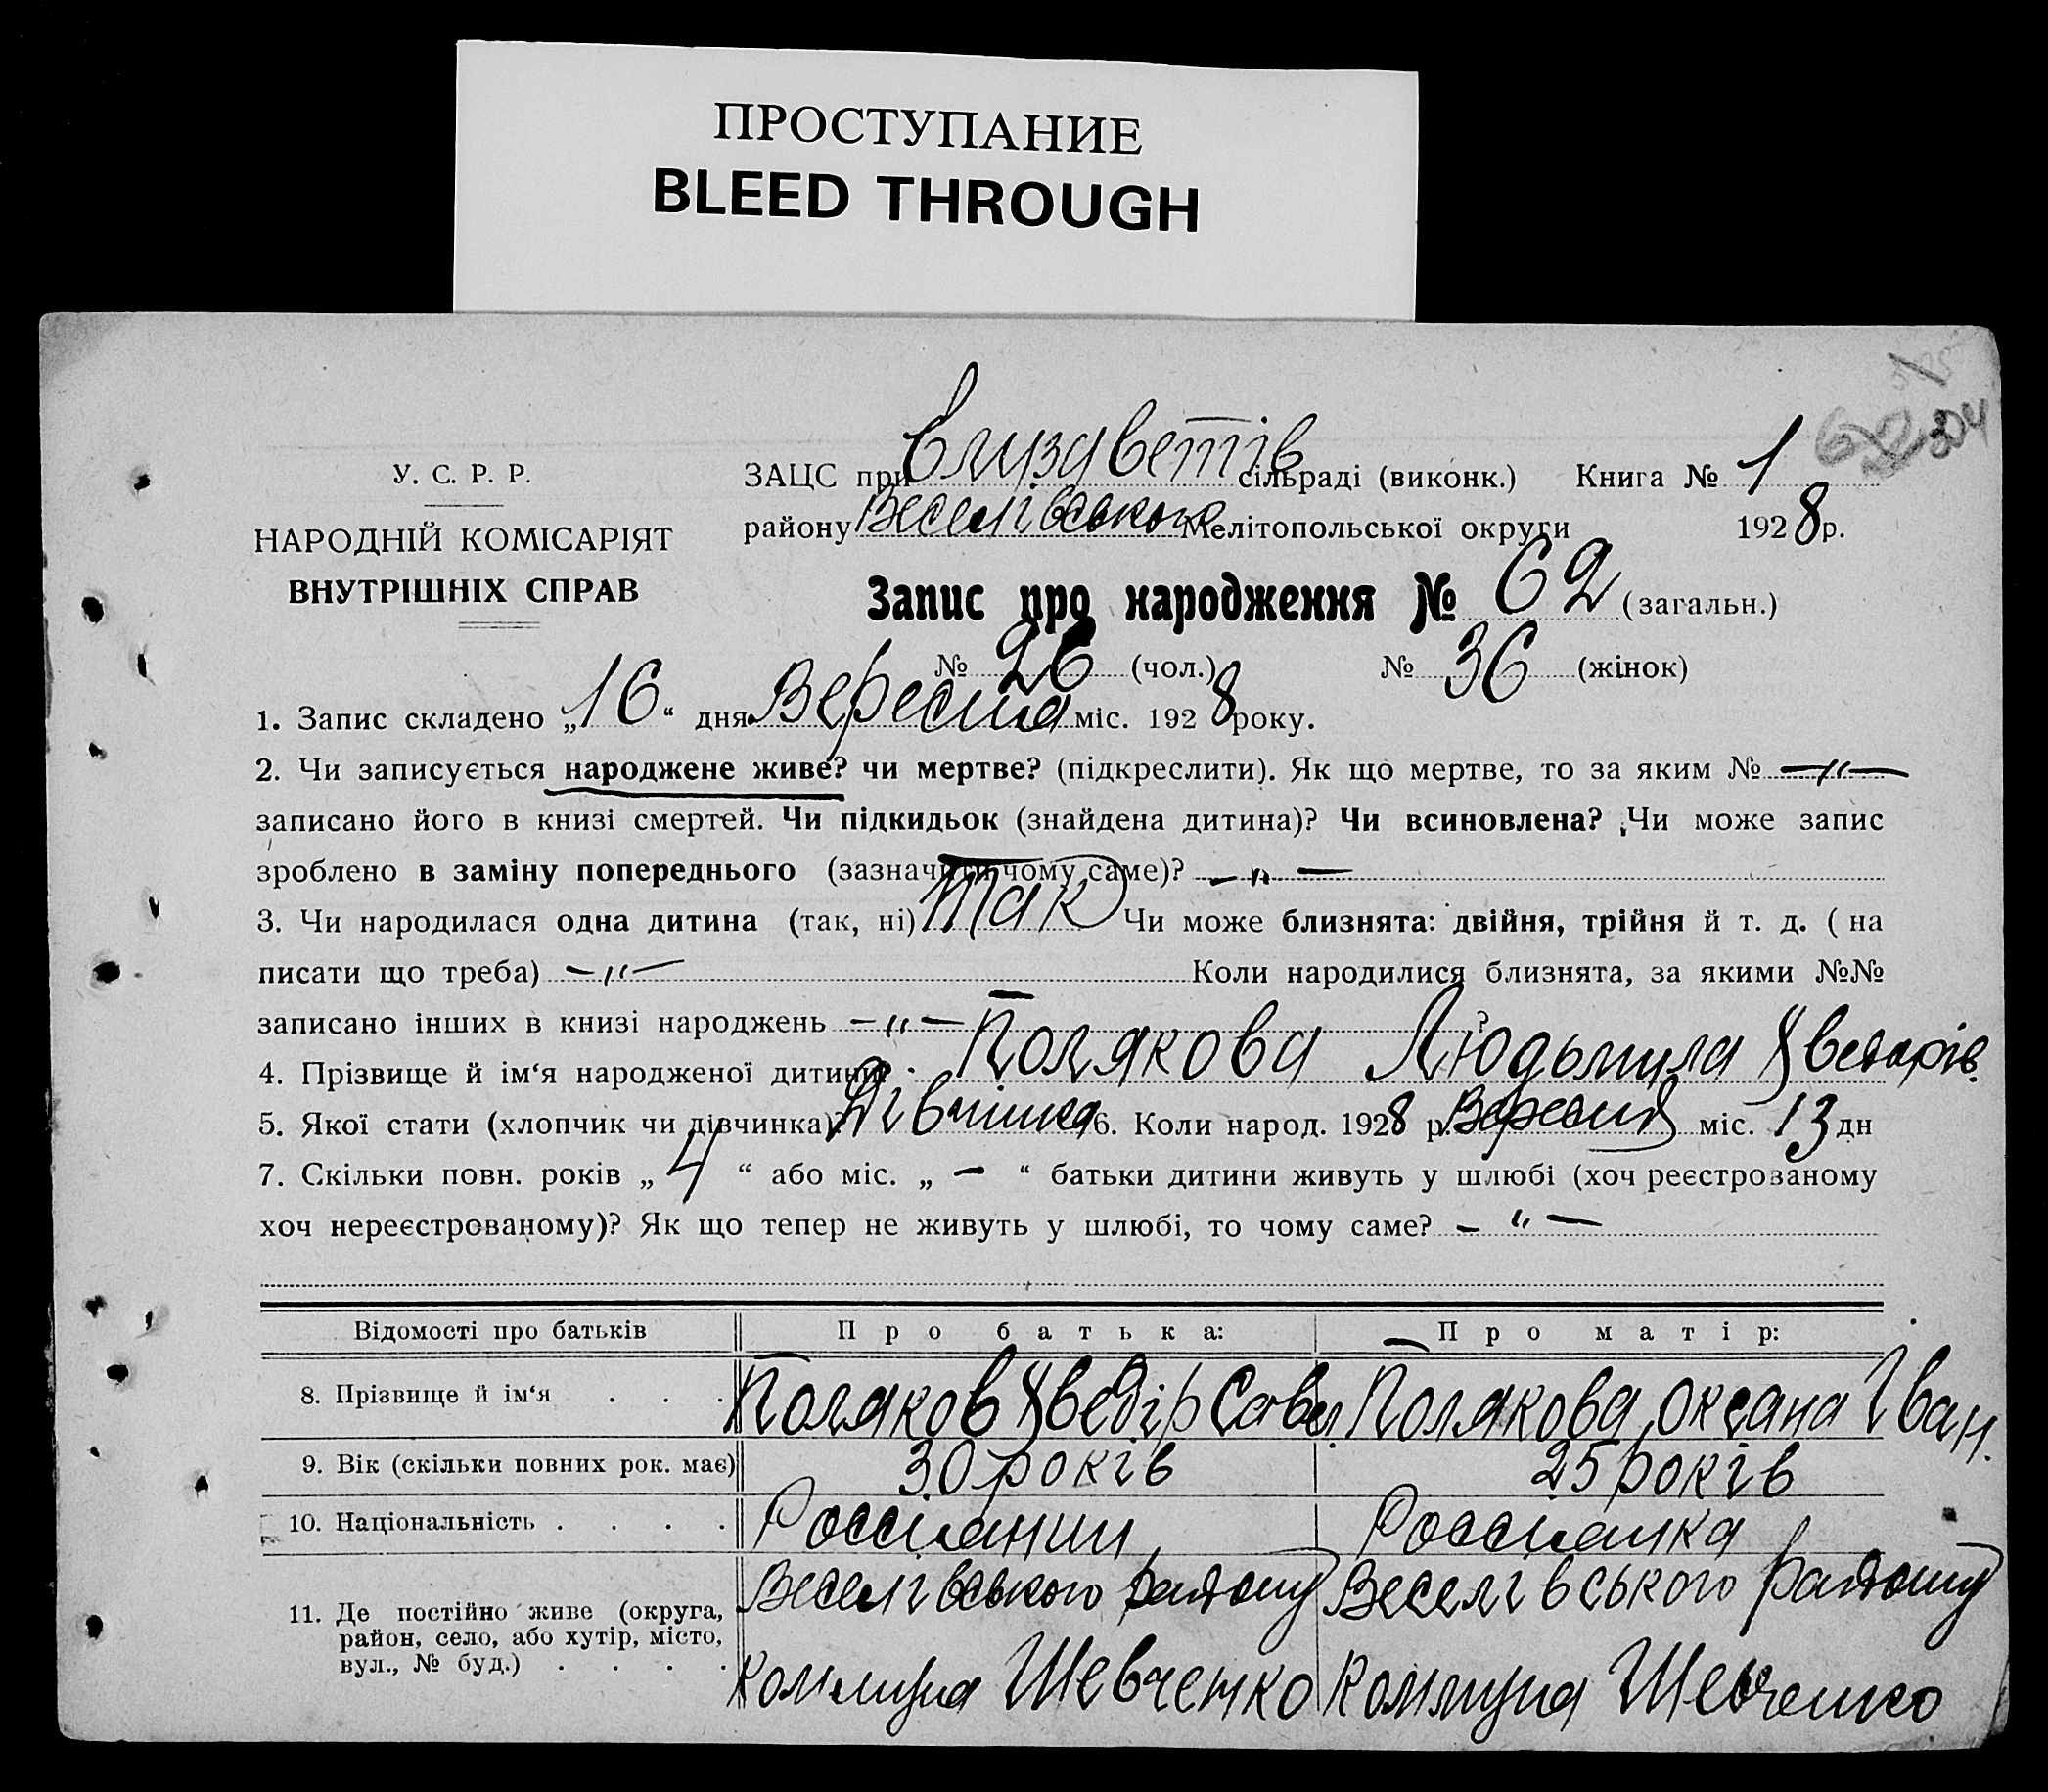 ПРОСТУПАНИЕ
BLEED THROUGH
304
У. С. Р. Р.
НАРОДНІЙ КОМІСАРІЯТ
ВНУТРІШНІХ СПРАВ
ЗАЦС при Єлизаветів сільраді (виконк.) Книга № 1
району Веселівського Мелітопольської округи 1928 р.
Запис про народження № 62 (загальн.)
№ 26 (чол.) № 36 (жінок)
1. Запис складено „16“ дня Вересня міс. 1928 року.
2. Чи записується народжене живе? чи мертве? (підкреслити). Як що мертве, то за яким № —"—
записано його в книзі смертей. Чи підкидьок (знайдена дитина)? Чи всиновлена? Чи може запис
зроблено в заміну попереднього (зазначити чому саме)? —"—
3. Чи народилася одна дитина (так, ні) Так Чи може близнята: двійня, трійня й т. д. ( на
писати що треба) —"— Коли народилися близнята, за якими №№
записано інших в книзі народжень —"— ?
4. Прізвище й ім‘я народженої дитини Полякова Людьмила
5. Якої стати (хлопчик чи дівчинка)? Дівчінка 6. Коли народ. 1928 р. Вересня міс. 13 дн
7. Скільки повн. років „4“ або міс. „—“ батьки дитини живуть у шлюбі (хоч реєстрованому
хоч нереєстрованому)? Як що тепер не живуть у шлюбі, то чому саме? —"—
Відомості про батьків Про батька: Про матір:
8. Прізвище й ім‘я . . . Поляков Хведір Савел. Полякова Оксана Іван.
9. Вік (скільки повних рок. має) 30 років 25 років
10. Національність . . . . Россіянин Россіянка
11. Де постійно живе (округа, район, село, або хутір, місто, вул., № буд.) . . . . Веселівського району Веселівського району
Коммуна Шевченко Коммуна Шевченко